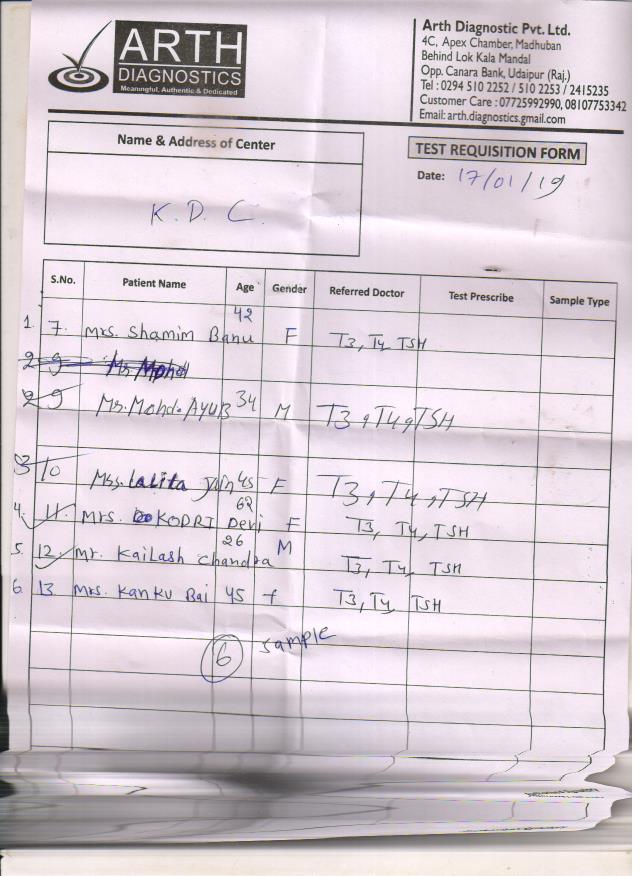 ARTH
DIAGNOSTICS
Meaningful, Authentic & Dedicated
Arth Diagnostic Pvt. Ltd.
4C, Apex Chamber, Madhuban
Behind Lok Kala Mandal
Opp. Canara Bank, Udaipur (Raj.)
Tel : 0294 510 2252 / 510 2253 / 2415235
Customer Care : 07725992990, 08107753342
Email: arth.diagnostics.gmail.com
Name & Address of Center
K. D. C.
TEST REQUISITION FORM
Date: 17/01/19
S.No. Patient Name Age Gender Referred Doctor Test Prescribe Sample Type
1. 7. Mrs. Shamim Banu 42 F T3, T4, TSH
2 9 Mr. Mohd
2 9 Mr. Mohd. AYUB 34 M T3, T4, TSH
3 10 Mrs. Lalita Jain 45 F T3, T4, TSH
4. 11. Mrs. KODRI Devi 62 F T3, T4, TSH
5. 12. Mr. Kailash Chandra 26 M T3, T4, TSH
6. 13 Mrs. Kanku Bai 45 f T3, T4, TSH
6 Sample